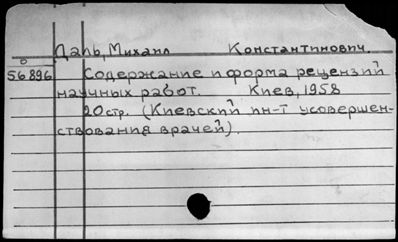 Даль, Михаил Константинович.
о
56896 Содержание и форма рецензий
научных работ. Киев, 1958
20 стр. (Киевский ин-т усовершен-
ствования врачей).